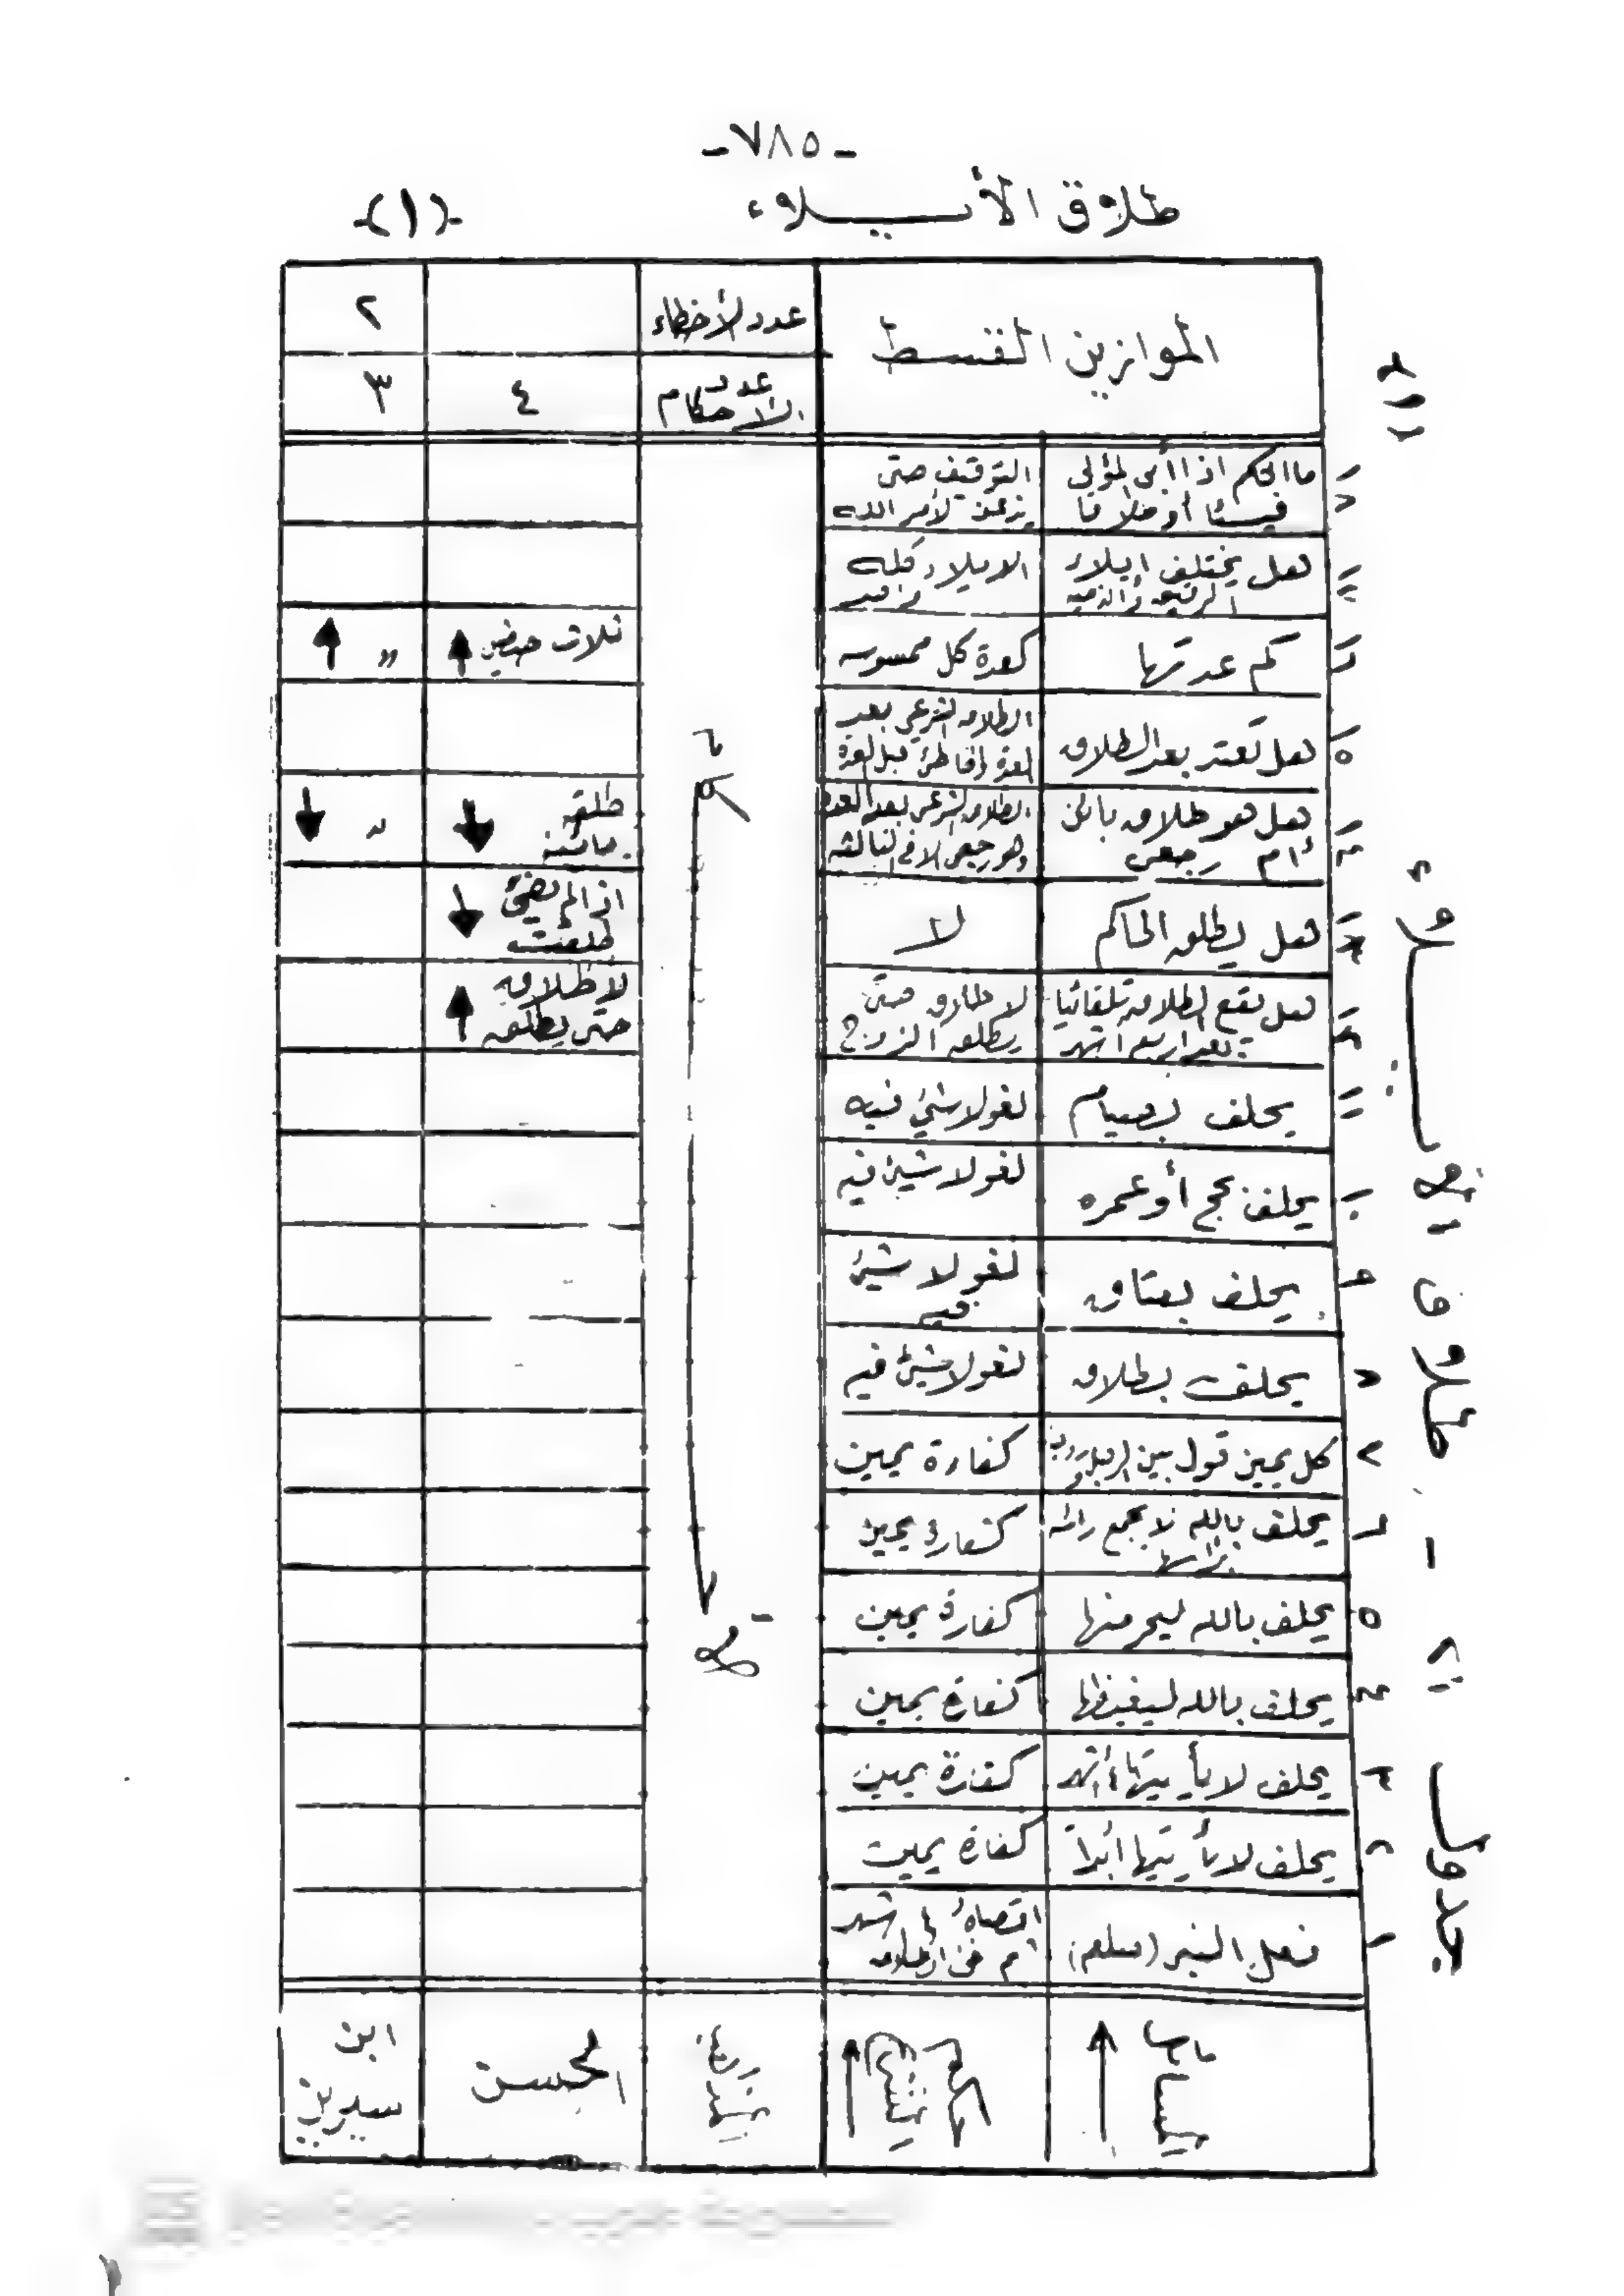 -٧٨٥-
طلاق الأيـلاء
-(١)-
الموازين القسط
عدد الأخطاء
٢
عدد الأحكام
٤
٣
ما الحكم اذا أبى المؤلي
فيئا أو طلاقا
التوقيف حتى
يذعن لأمر الله
هل يختلف ايلاء
الايلاء كله
كم عدتها
كعدة كل ممسوسه
ثلاث حيض
"
هل تعتد بعد الطلاق
الطلاق الشرعي بعد
العدة والخاطئ قبل العدة
هل هو طلاق بائن
أم رجعى
الطلاق الشرعى بعد العدة
وهو رجعى الا في الثالثه
طلقه
بائنه
"
هل يطلق الحاكم
لا
اذا لم يفئ
طلقت
هل يقع الطلاق تلقائيا
بعد اربع اشهر
لا طلاق حتى
يطلق الزوج
لا طلاق
حتى يطلق
يحلف بصيام
لغو لا شئ فيه
يحلف بحج أو عمره
لغو لا شئ فيه
يحلف بعتاق
لغو لا شئ
فيه
يحلف بطلاق
لغو لا شئ فيه
كل يمين قول بين الرجل
كفارة يمين
يحلف بالله لا يجمع رأسه
كفارة يمين
٥
يحلف بالله ليحرمنها
كفارة يمين
يحلف بالله ليغيظها
كفارة يمين
٣
يحلف لا يأتيها ٤ أشهر
كفارة يمين
٢
يحلف لا يأتيها أبدا
كفارة يمين
١
فعل النبي (صلعم)
أقصاه ٤ أشهر
ثم فئ أو طلاق
الحسن
ابن
سيرين
جدول
طلاق الأيـلاء